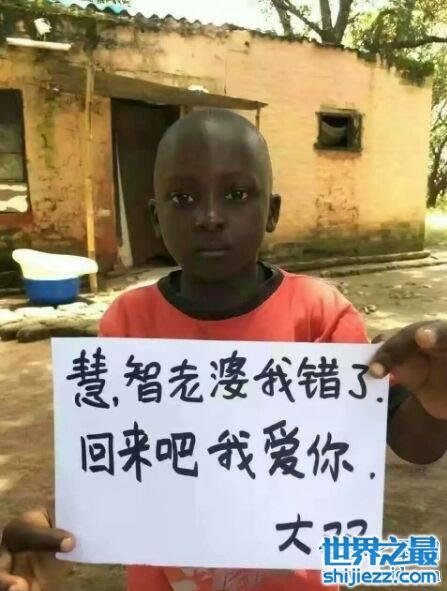 慧,智老婆我错了.
回来吧我爱你.
大双
世界之最
shijiezz.com